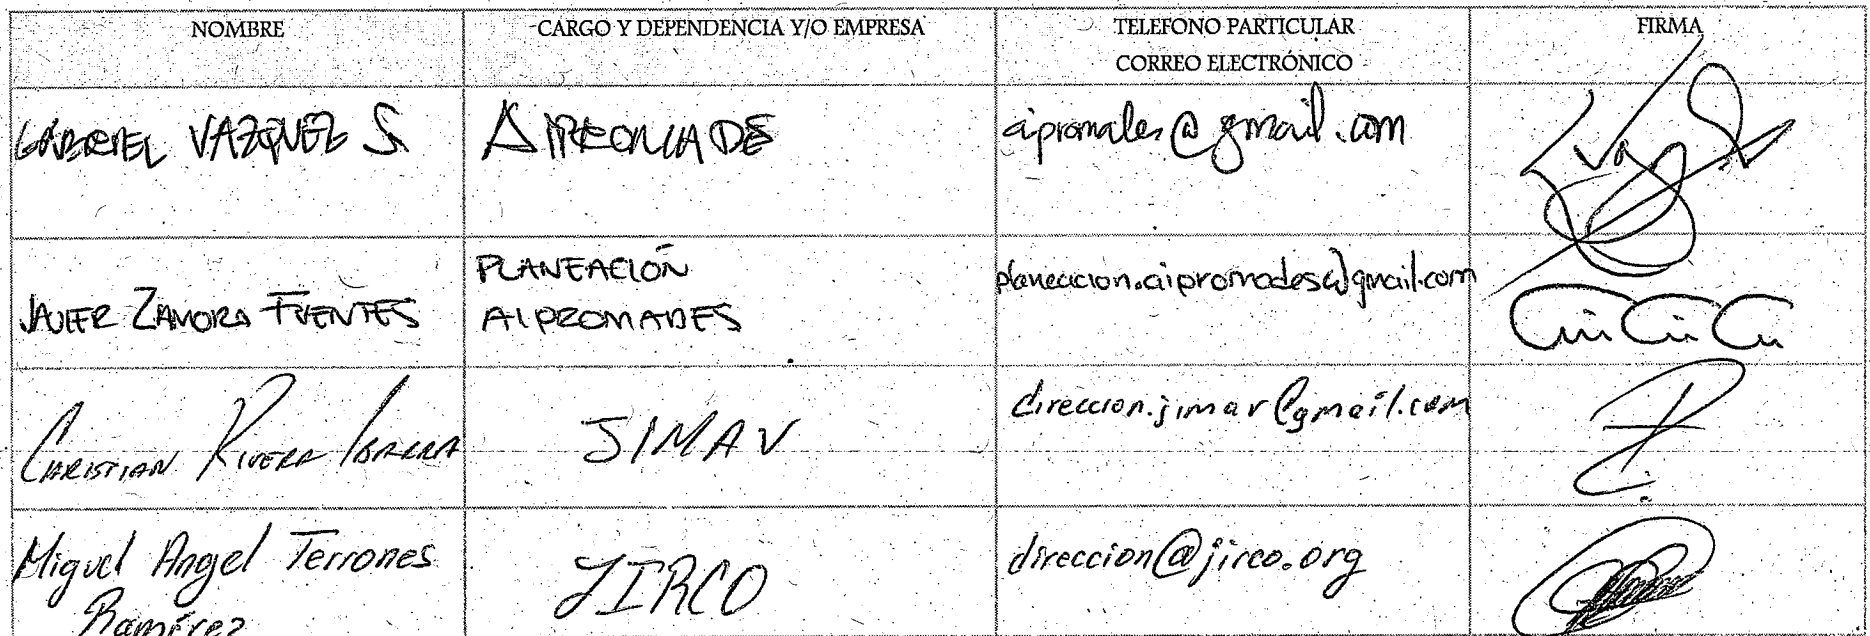 NOMBRE
CARGO Y DEPENDENCIA Y/O EMPRESA
TELEFONO PARTICULAR
CORREO ELECTRÓNICO
FIRMA
GABRIEL VAZQUEZ S.
AIPROMADES
aipromades@gmail.com
JAVIER ZAMORA FUENTES
PLANEACIÓN
AIPROMADES
planeacion.aipromades@gmail.com
CHRISTIAN RIVERA IBARRA
JIMAV
direccion.jimav@gmail.com
Miguel Angel Terrones
Ramírez
JIRCO
direccion@jirco.org